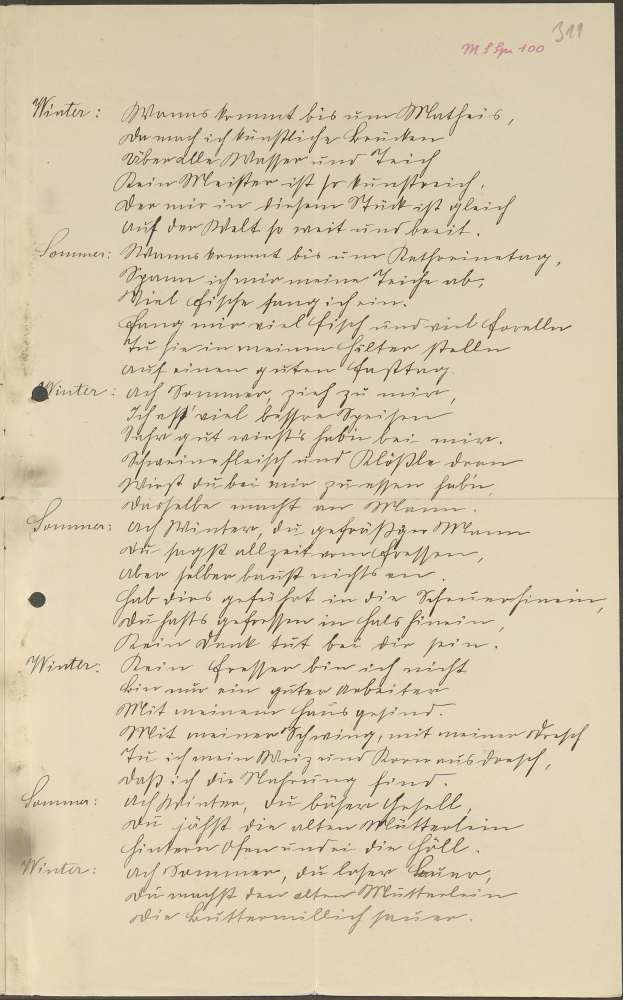 311
M S Spr 100
Winter: Wanns kommt bis um Matheis,
Da mach ich künstliche Brücken
Über alle Wasser und Teich
Kein Meister ist so kunstreich,
Der mir in diesem Stück ist gleich
Auf der Welt so weit und breit.
Sommer: Wanns kommt bis um Kathreinetag,
Spann ich mir meine Teiche ab,
Viel Fische fang ich ein.
Fang mir viel Fisch und viel Forelln
Tu sie in meinem Hilter stelln
Auf einen guten Fasttag.
Winter: Ach Sommer, zieh zu mir,
Ich ass' viel bessre Speisen
Sehr gut wirst's hab'n bei mir.
Schweinefleisch und Klößle dran
Wirst du bei mir zu essen hab'n,
Dasselbe macht an Mann.
Sommer: Ach Winter, du gefräßger Mann
Du sagst allzeit vom Fressen,
Aber selber baust nichts an.
Hab dirs geführt in die Scheuer hinein,
Du hasts gefressen in Hals hinein,
Kein Dank tut bei dir sein.
Winter: Kein Fresser bin ich nicht
Bin nur ein guter Arbeiter
Mit meinem Hausgesind.
Mit meiner Schwing, mit meiner Dresch
Tu ich mein Weiz und Korn aus dresch,
Daß ich die Nahrung find.
Sommer: Ach Winter, du böser Gesell,
Du jähst die alten Mütterlein
Hintern Ofen und ei die Höll.
Winter: Ach Sommer, du loser Bauer,
Du machst den alten Mütterlein
Die Buttermillich sauer.